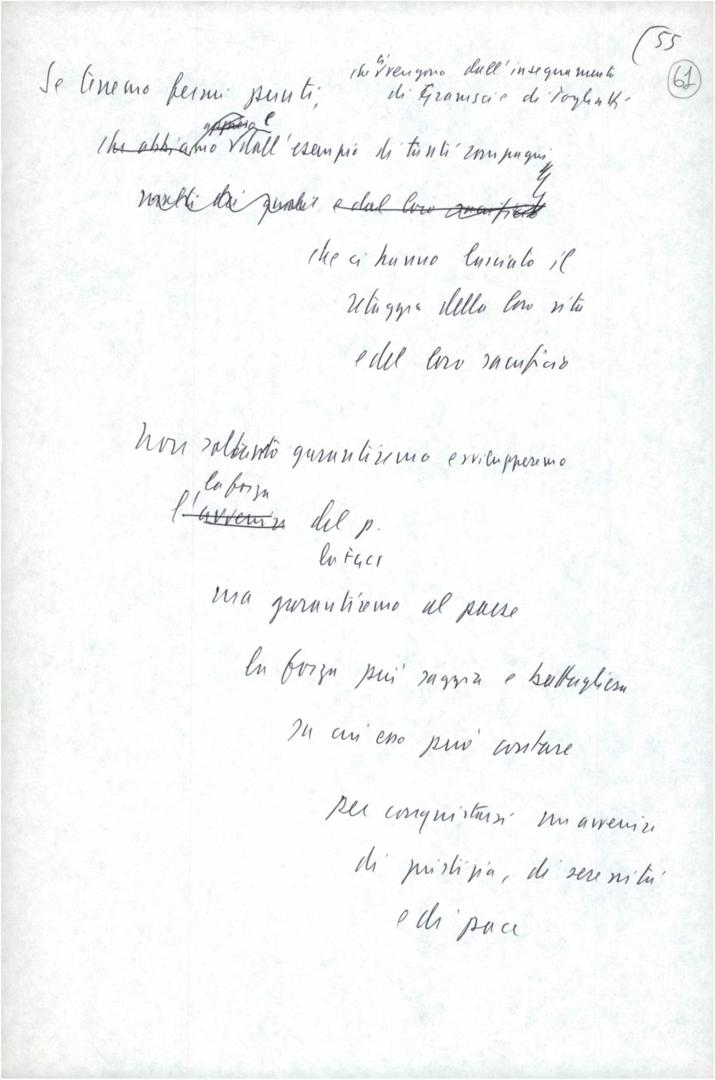 55
61
che ci vengono dall'insegnamento
Se terremo fermi punti, di Gramsci e di Togliatti
e
che abbiamo dall'esempio di tanti compagni,
molti dei quali e dal loro sacrificio
che ci hanno lasciato il
retaggio della loro vita
e del loro sacrificio
Non soltanto garantiremo e svilupperemo
la forza
l'avvenire del p.
ma garantiremo al paese
la forza più saggia e battagliera
su cui esso può contare
per conquistarsi un avvenire
di giustizia, di serenità
e di pace